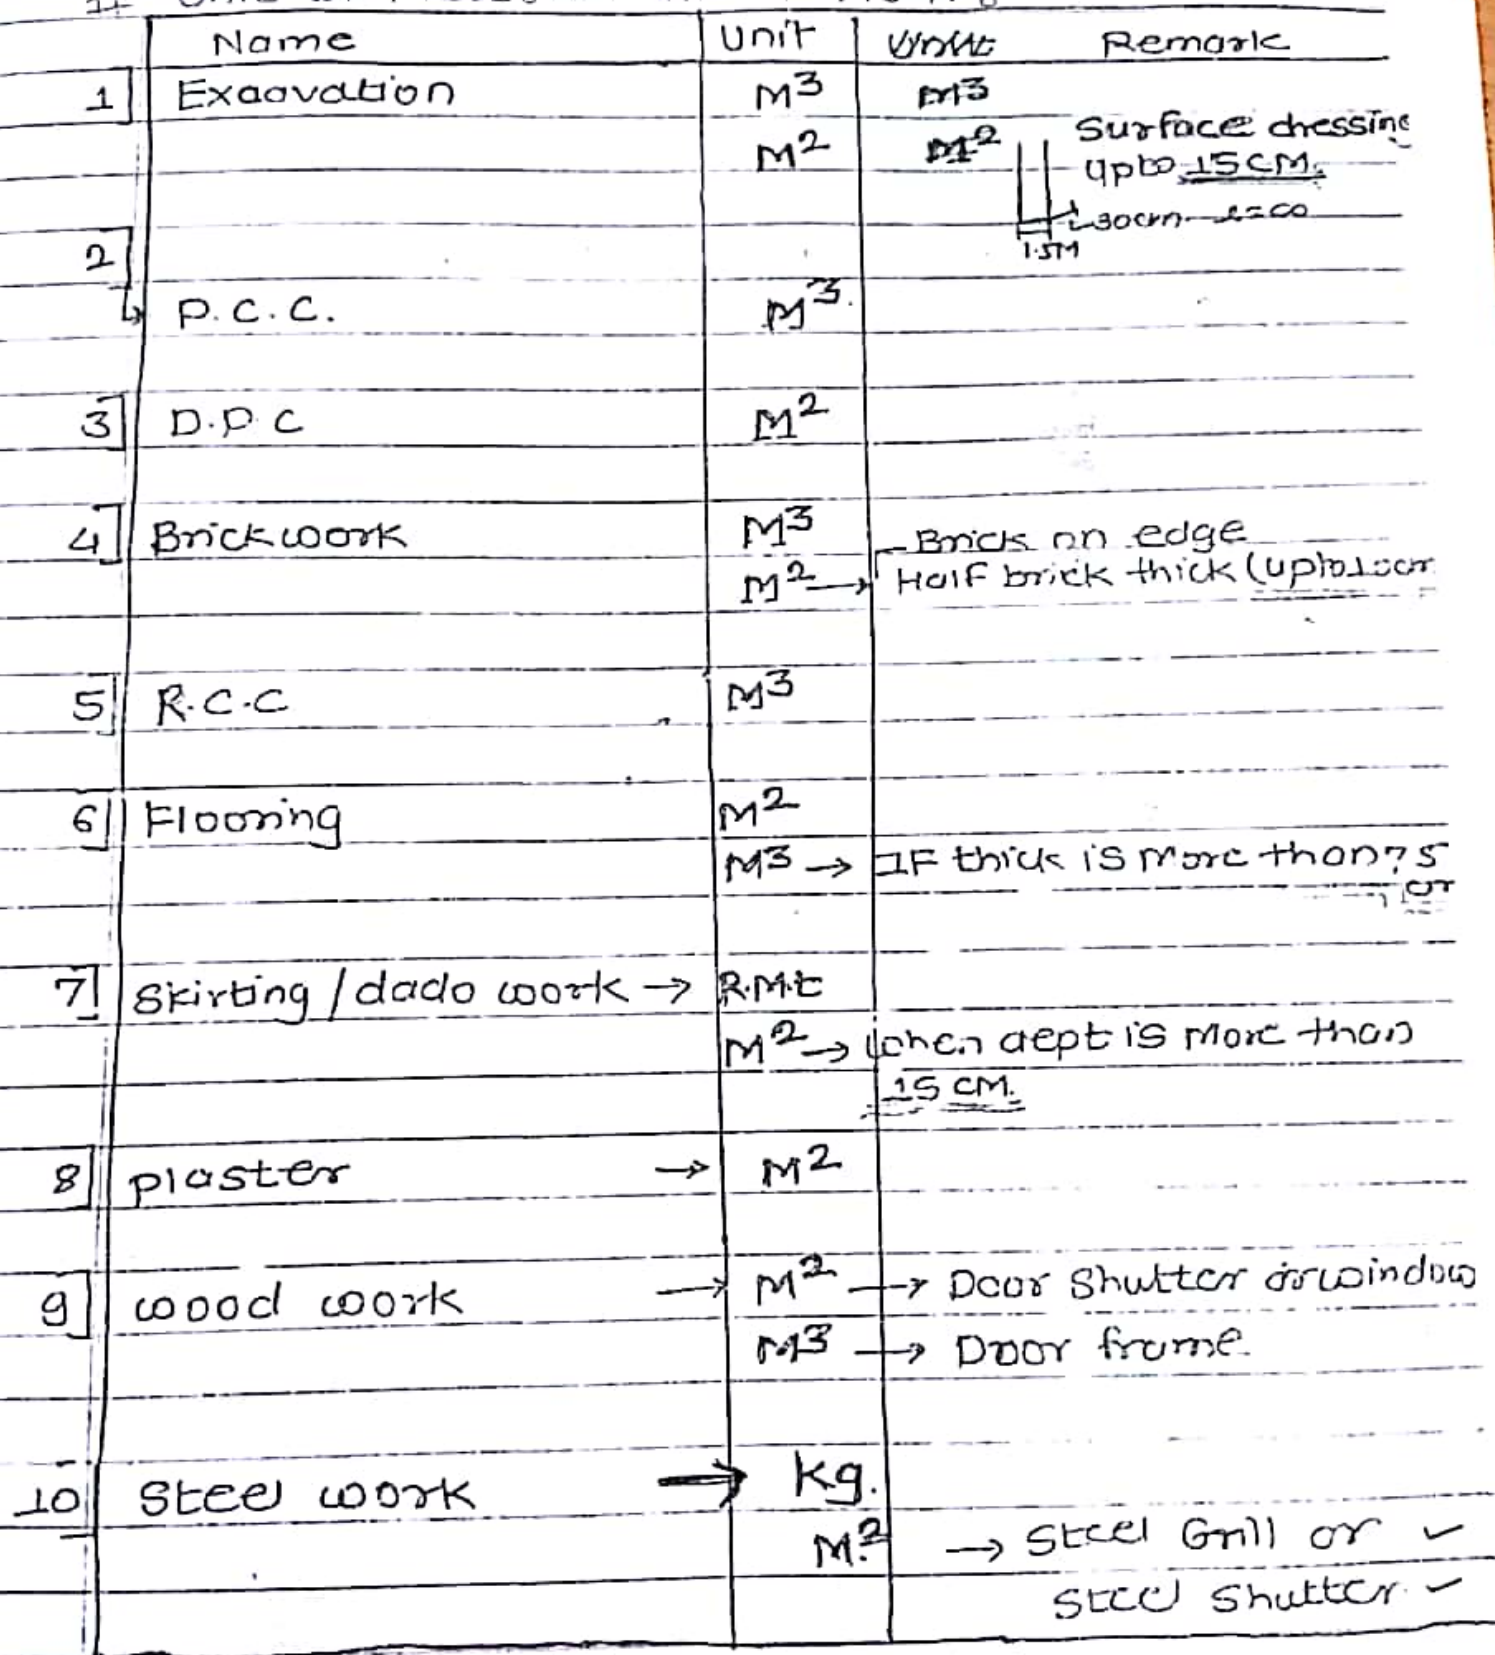 Name Unit Remark
1] Exaavation M3 M3
M2 M2 Surface dressing
upto 15 CM.
30cm l=∞
1.5M
2]
↳ P.C.C. M3.
3] D.P.C M2
4] Brickwork M3 Brick on edge
M2 → Half brick thick (upto 10cm
5] R.C.C M3
6] Flooring M2
M3 → IF thick is more than 75
7] Skirting / dado work → R.M.t
M2 → when dept is more than
15 CM.
8] plaster → M2
9] wood work → M2 → Door Shutter or window
M3 → Door frame.
10 Steel work → Kg.
M.2 → Steel Grill or ✓
Steel Shutter. ✓